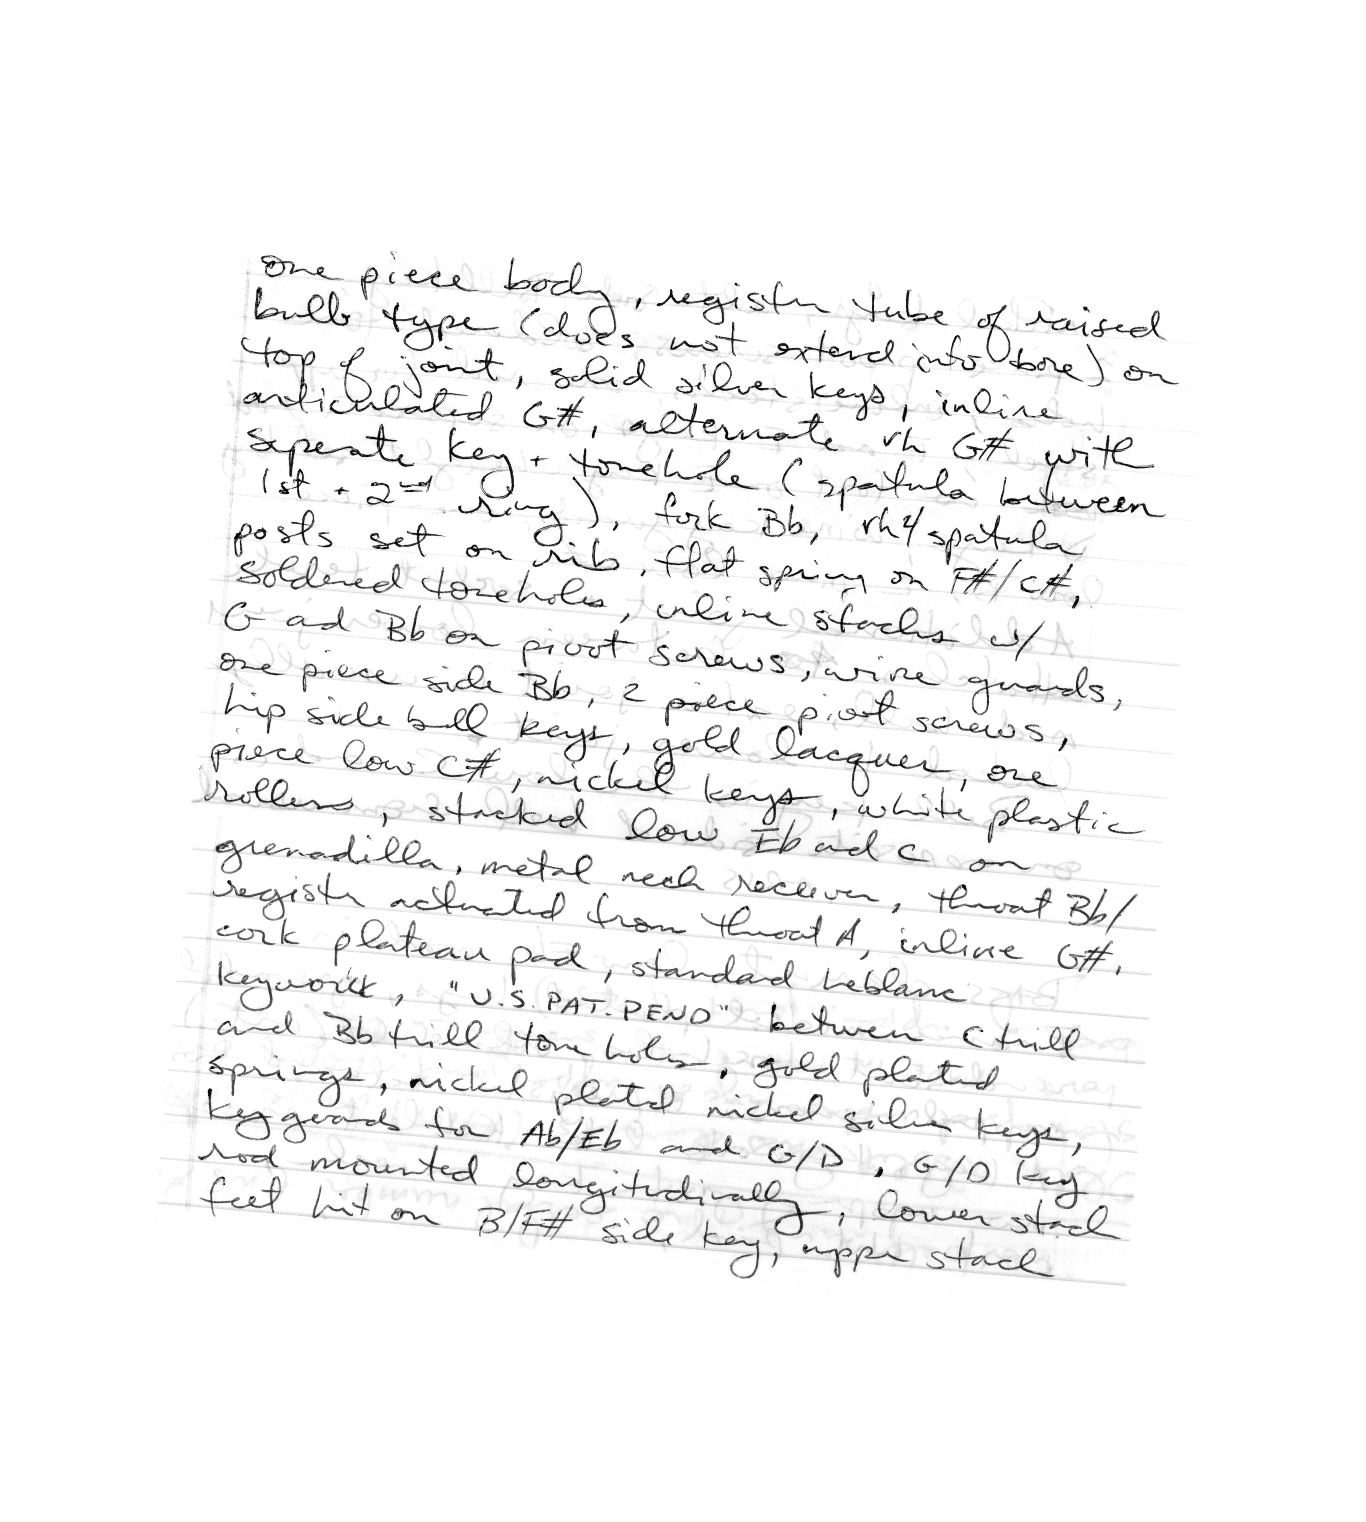 one piece body, register tube of raised
bulb type (does not extend into bore) on
top of joint, solid silver keys, inline
articulated G#, alternate rh G# with
seperate key + tonehole (spatula between
1st + 2nd ring), fork Bb, rh4 spatula
posts set on rib, flat spring on F#/C#,
soldered toneholes, inline stacks w/
G ad Bb on pivot screws, wire guards,
one piece side Bb, 2 piece pivot screws,
hip side bell keys, gold lacquer, one
piece low C#, nickel keys, white plastic
rollers, stacked low Eb ad C on
grenadilla, metal neck receiver, throat Bb/
register actuated from throat A, inline G#,
cork plateau pad, standard Leblanc
keywork, "U.S. PAT. PEND" between C trill
and Bb trill tone holes, gold plated
springs, nickel plated nickel silver keys,
key guards for Ab/Eb and G/D, G/D key
rod mounted longitudinally, lower stack
feet hit on B/F# side key, upper stack